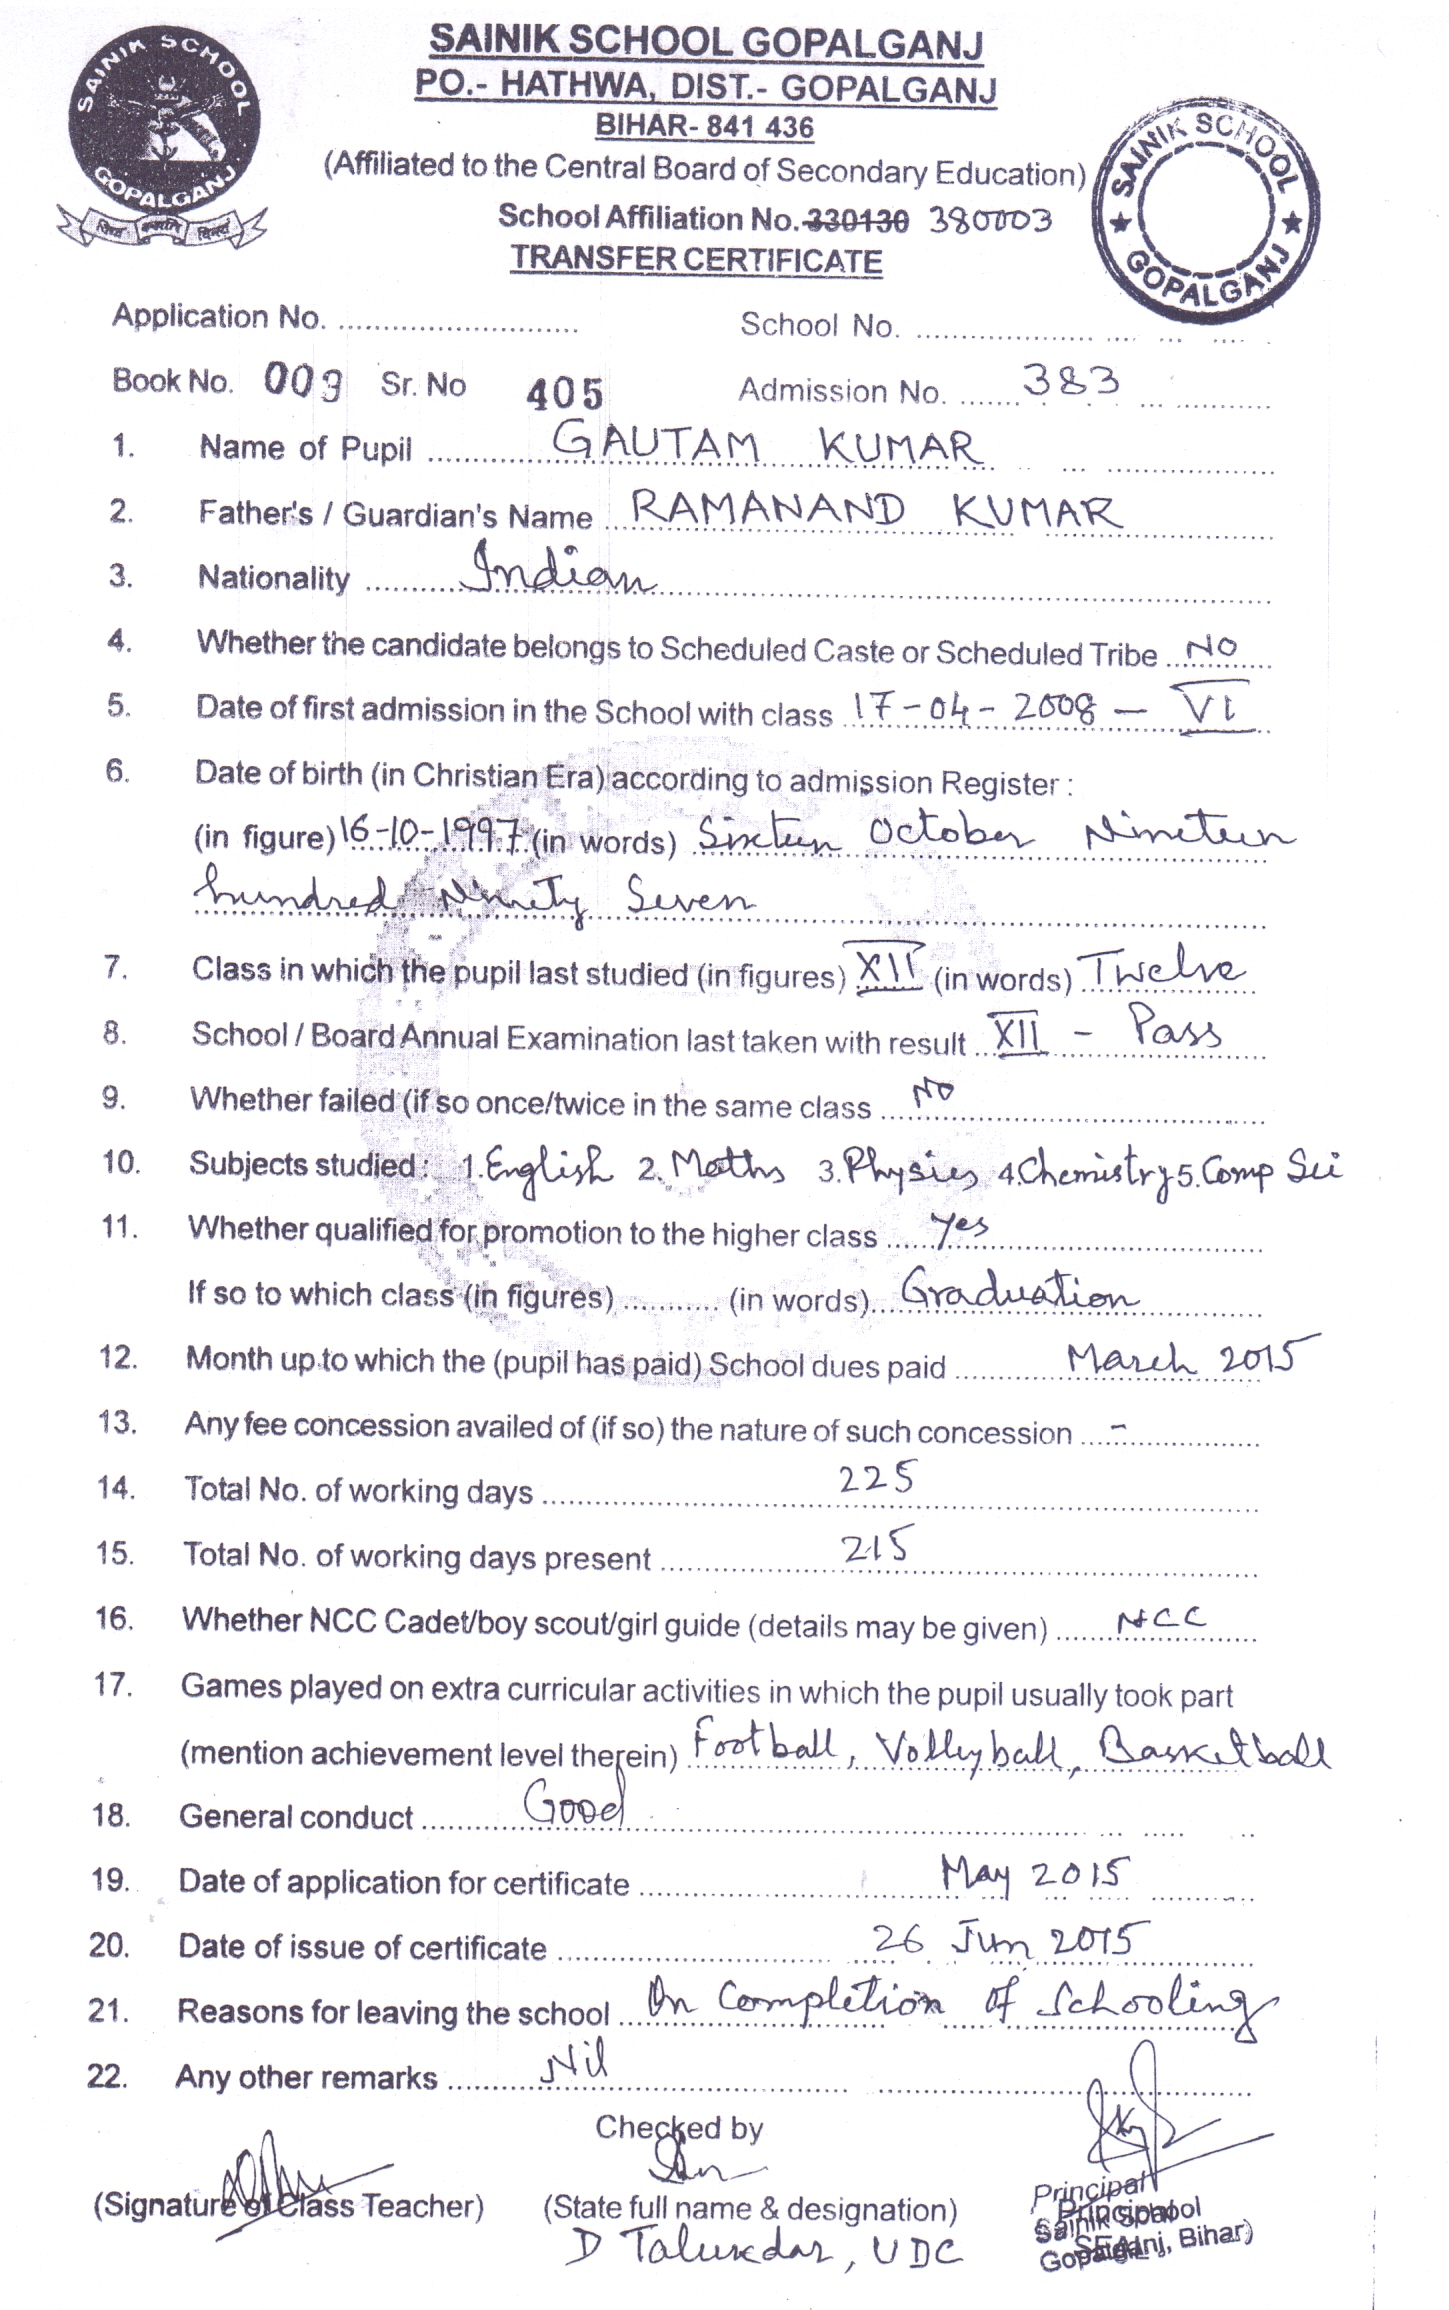 SAINIK SCHOOL GOPALGANJ
SAINIK SCHOOL GOPALGANJ
PO.- HATHWA, DIST.- GOPALGANJ
BIHAR- 841 436
(Affiliated to the Central Board of Secondary Education)
SAINIK SCHOOL ★ GOPALGANJ ★
School Affiliation No. 330130 380003
TRANSFER CERTIFICATE
Application No. ............ School No. ............
Book No. 009 Sr. No 405 Admission No. 383
1. Name of Pupil GAUTAM KUMAR
2. Father's / Guardian's Name RAMANAND KUMAR
3. Nationality Indian
4. Whether the candidate belongs to Scheduled Caste or Scheduled Tribe NO
5. Date of first admission in the School with class 17-04-2008 - VI
6. Date of birth (in Christian Era) according to admission Register :
(in figure) 16-10-1997 (in words) Sixteen October Nineteen
hundred Ninety Seven
7. Class in which the pupil last studied (in figures) XII (in words) Twelve
8. School / Board Annual Examination last taken with result XII - Pass
9. Whether failed (if so once/twice in the same class NO
10. Subjects studied : 1.English 2.Maths 3.Physics 4.Chemistry 5.Comp Sci
11. Whether qualified for promotion to the higher class Yes
If so to which class (in figures) ........... (in words) Graduation
12. Month up to which the (pupil has paid) School dues paid March 2015
13. Any fee concession availed of (if so) the nature of such concession -
14. Total No. of working days 225
15. Total No. of working days present 215
16. Whether NCC Cadet/boy scout/girl guide (details may be given) NCC
17. Games played on extra curricular activities in which the pupil usually took part
(mention achievement level therein) Football, Volleyball, Basketball
18. General conduct Good
19. Date of application for certificate May 2015
20. Date of issue of certificate 26 Jun 2015
21. Reasons for leaving the school On Completion Of Schooling
22. Any other remarks Nil
Checked by
(Signature of Class Teacher) (State full name & designation) Principal
D Talukdar, UDC
Principal
Sainik School
SEAL
Gopalganj, Bihar)